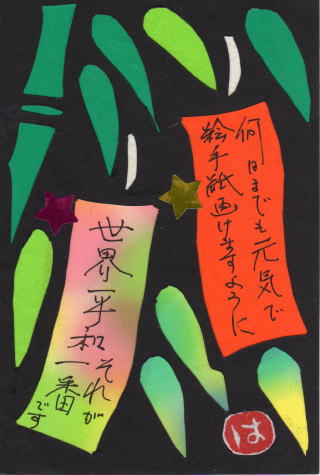 何日までも元気で
絵手紙画けますように
世界平和
それが
一番です
は